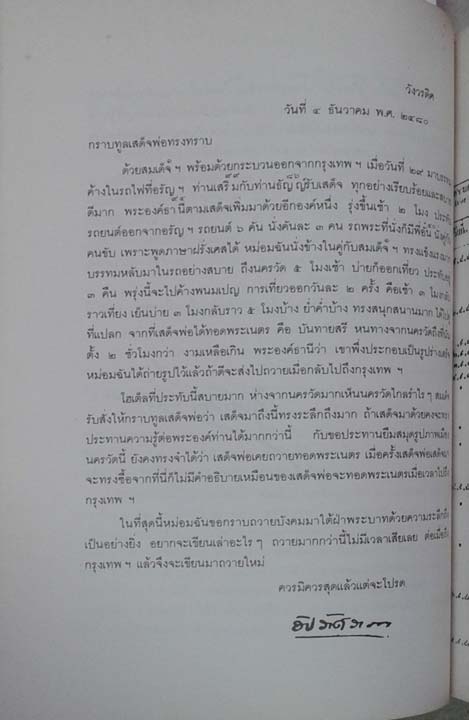 วังวรดิศ
วันที่ ๔ ธันวาคม พ.ศ. ๒๔๘๐
กราบทูลเสด็จพ่อทรงทราบ
ด้วยสมเด็จฯ พร้อมด้วยกระบวนออกจากกรุงเทพ ฯ เมื่อวันที่ ๒๙ มา
ค้างในรถไฟที่อรัญ ฯ ท่านเสริมกับท่านธัญญรับเสด็จ ทุกอย่างเรียบร้อยและสบาย
ดีมาก พระองค์ธานีตามเสด็จเพิ่มมาด้วยอีกองค์หนึ่ง รุ่งขึ้นเช้า ๒ โมง
รถยนต์ออกจากอรัญ ฯ รถยนต์ ๖ คัน นั่งคันละ ๓ คน รถพระที่นั่งก็มีพี่อั๋น
คนขับ เพราะพูดภาษาฝรั่งเศสได้ หม่อมฉันนั่งข้างในคู่กับสมเด็จฯ ทรงแข็งแรงมาก
บรรทมหลับมาในรถอย่างสบาย ถึงนครวัด ๕ โมงเช้า บ่ายก็ออกเที่ยว
๓ คืน พรุ่งนี้จะไปค้างพนมเปญ การเที่ยวออกวันละ ๒ ครั้ง คือเช้า ๓ โมง
ราวเที่ยง เย็นบ่าย ๓ โมงกลับราว ๕ โมงบ้าง ย่ำค่ำบ้าง ทรงสนุกสนานมาก
ที่แปลก จากที่เสด็จพ่อได้ทอดพระเนตร คือ บันทายสรี หนทางจากนครวัดถึง
ตั้ง ๒ ชั่วโมงกว่า งามเหลือเกิน พระองค์ธานีว่า เขาพึ่งประกอบเป็นรูปร่าง
หม่อมฉันได้ถ่ายรูปไว้แล้วถ้าดีจะส่งไปถวายเมื่อกลับไปถึงกรุงเทพ ฯ
โฮเต็ลที่ประทับนี้สบายมาก ห่างจากนครวัดมากเห็นนครวัดไกลรำไร ๆ
รับสั่งให้กราบทูลเสด็จพ่อว่า เสด็จมาถึงนี้ทรงระลึกถึงมาก ถ้าเสด็จมาด้วยคง
ประทานความรู้ต่อพระองค์ท่านได้มากกว่านี้ กับขอประทานยืมสมุดรูปภาพเมือง
นครวัดนี้ ยังคงทรงจำได้ว่า เสด็จพ่อเคยถวายทอดพระเนตร เมื่อครั้งเสด็จพ่อเสด็จมา
จะทรงซื้อจากที่นี่ก็ไม่มีคำอธิบายเหมือนของเสด็จพ่อจะทอดพระเนตรเมื่อเวลาไปถึง
กรุงเทพ ฯ
ในที่สุดนี้หม่อมฉันขอกราบถวายบังคมมาใต้ฝ่าพระบาทด้วยความระลึกถึง
เป็นอย่างยิ่ง อยากจะเขียนเล่าอะไร ๆ ถวายมากกว่านี้ไม่มีเวลาเสียเลย ต่อเมื่อถึง
กรุงเทพ ฯ แล้วจึงจะเขียนมาถวายใหม่
ควรมิควรสุดแล้วแต่จะโปรด